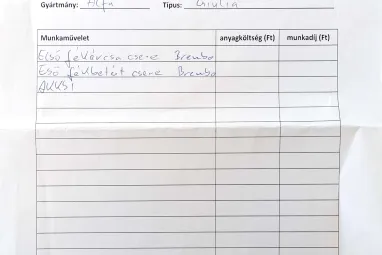 Gyártmány: Alfa Típus: Giulia
Munkaművelet anyagköltség (Ft) munkadíj (Ft)
Első féktárcsa csere Brembo
Első fékbetét csere Brembo
AKKSI